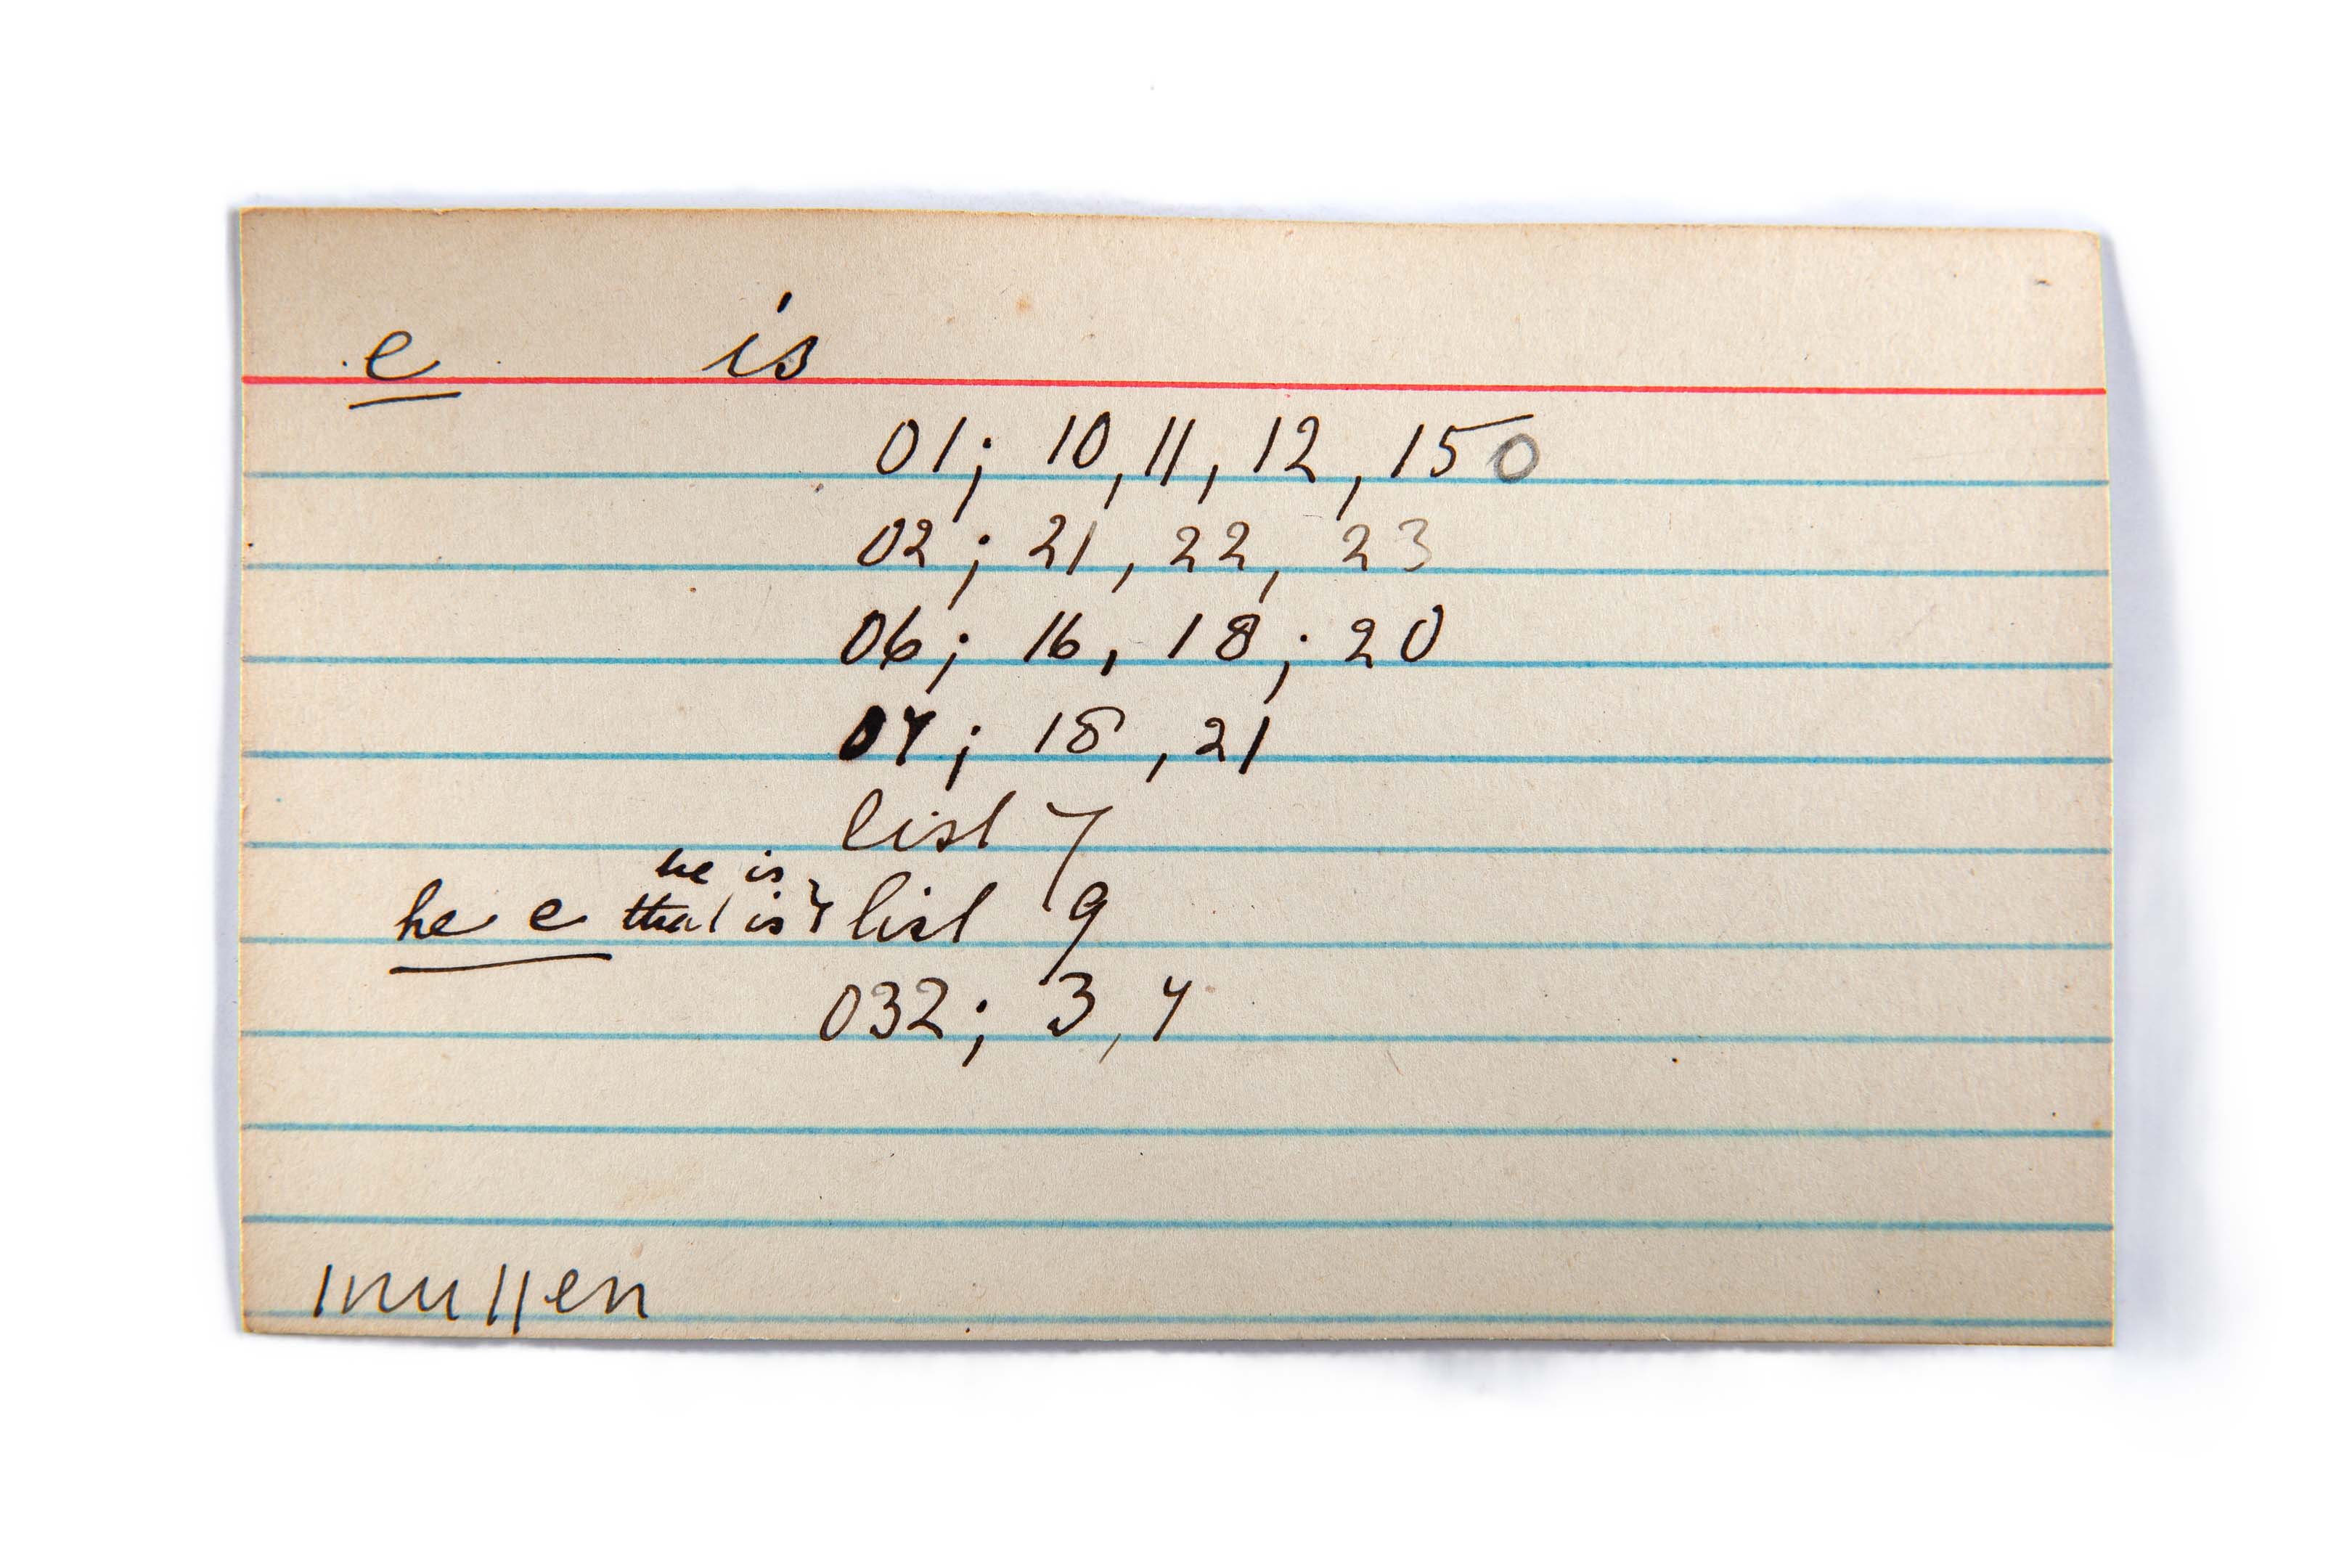 e is
01; 10, 11, 12, 150
02; 21, 22, 23
06; 16, 18; 20
04; 18, 21
list 7
he is
he e that is } list 9
032; 3, 4
mullen